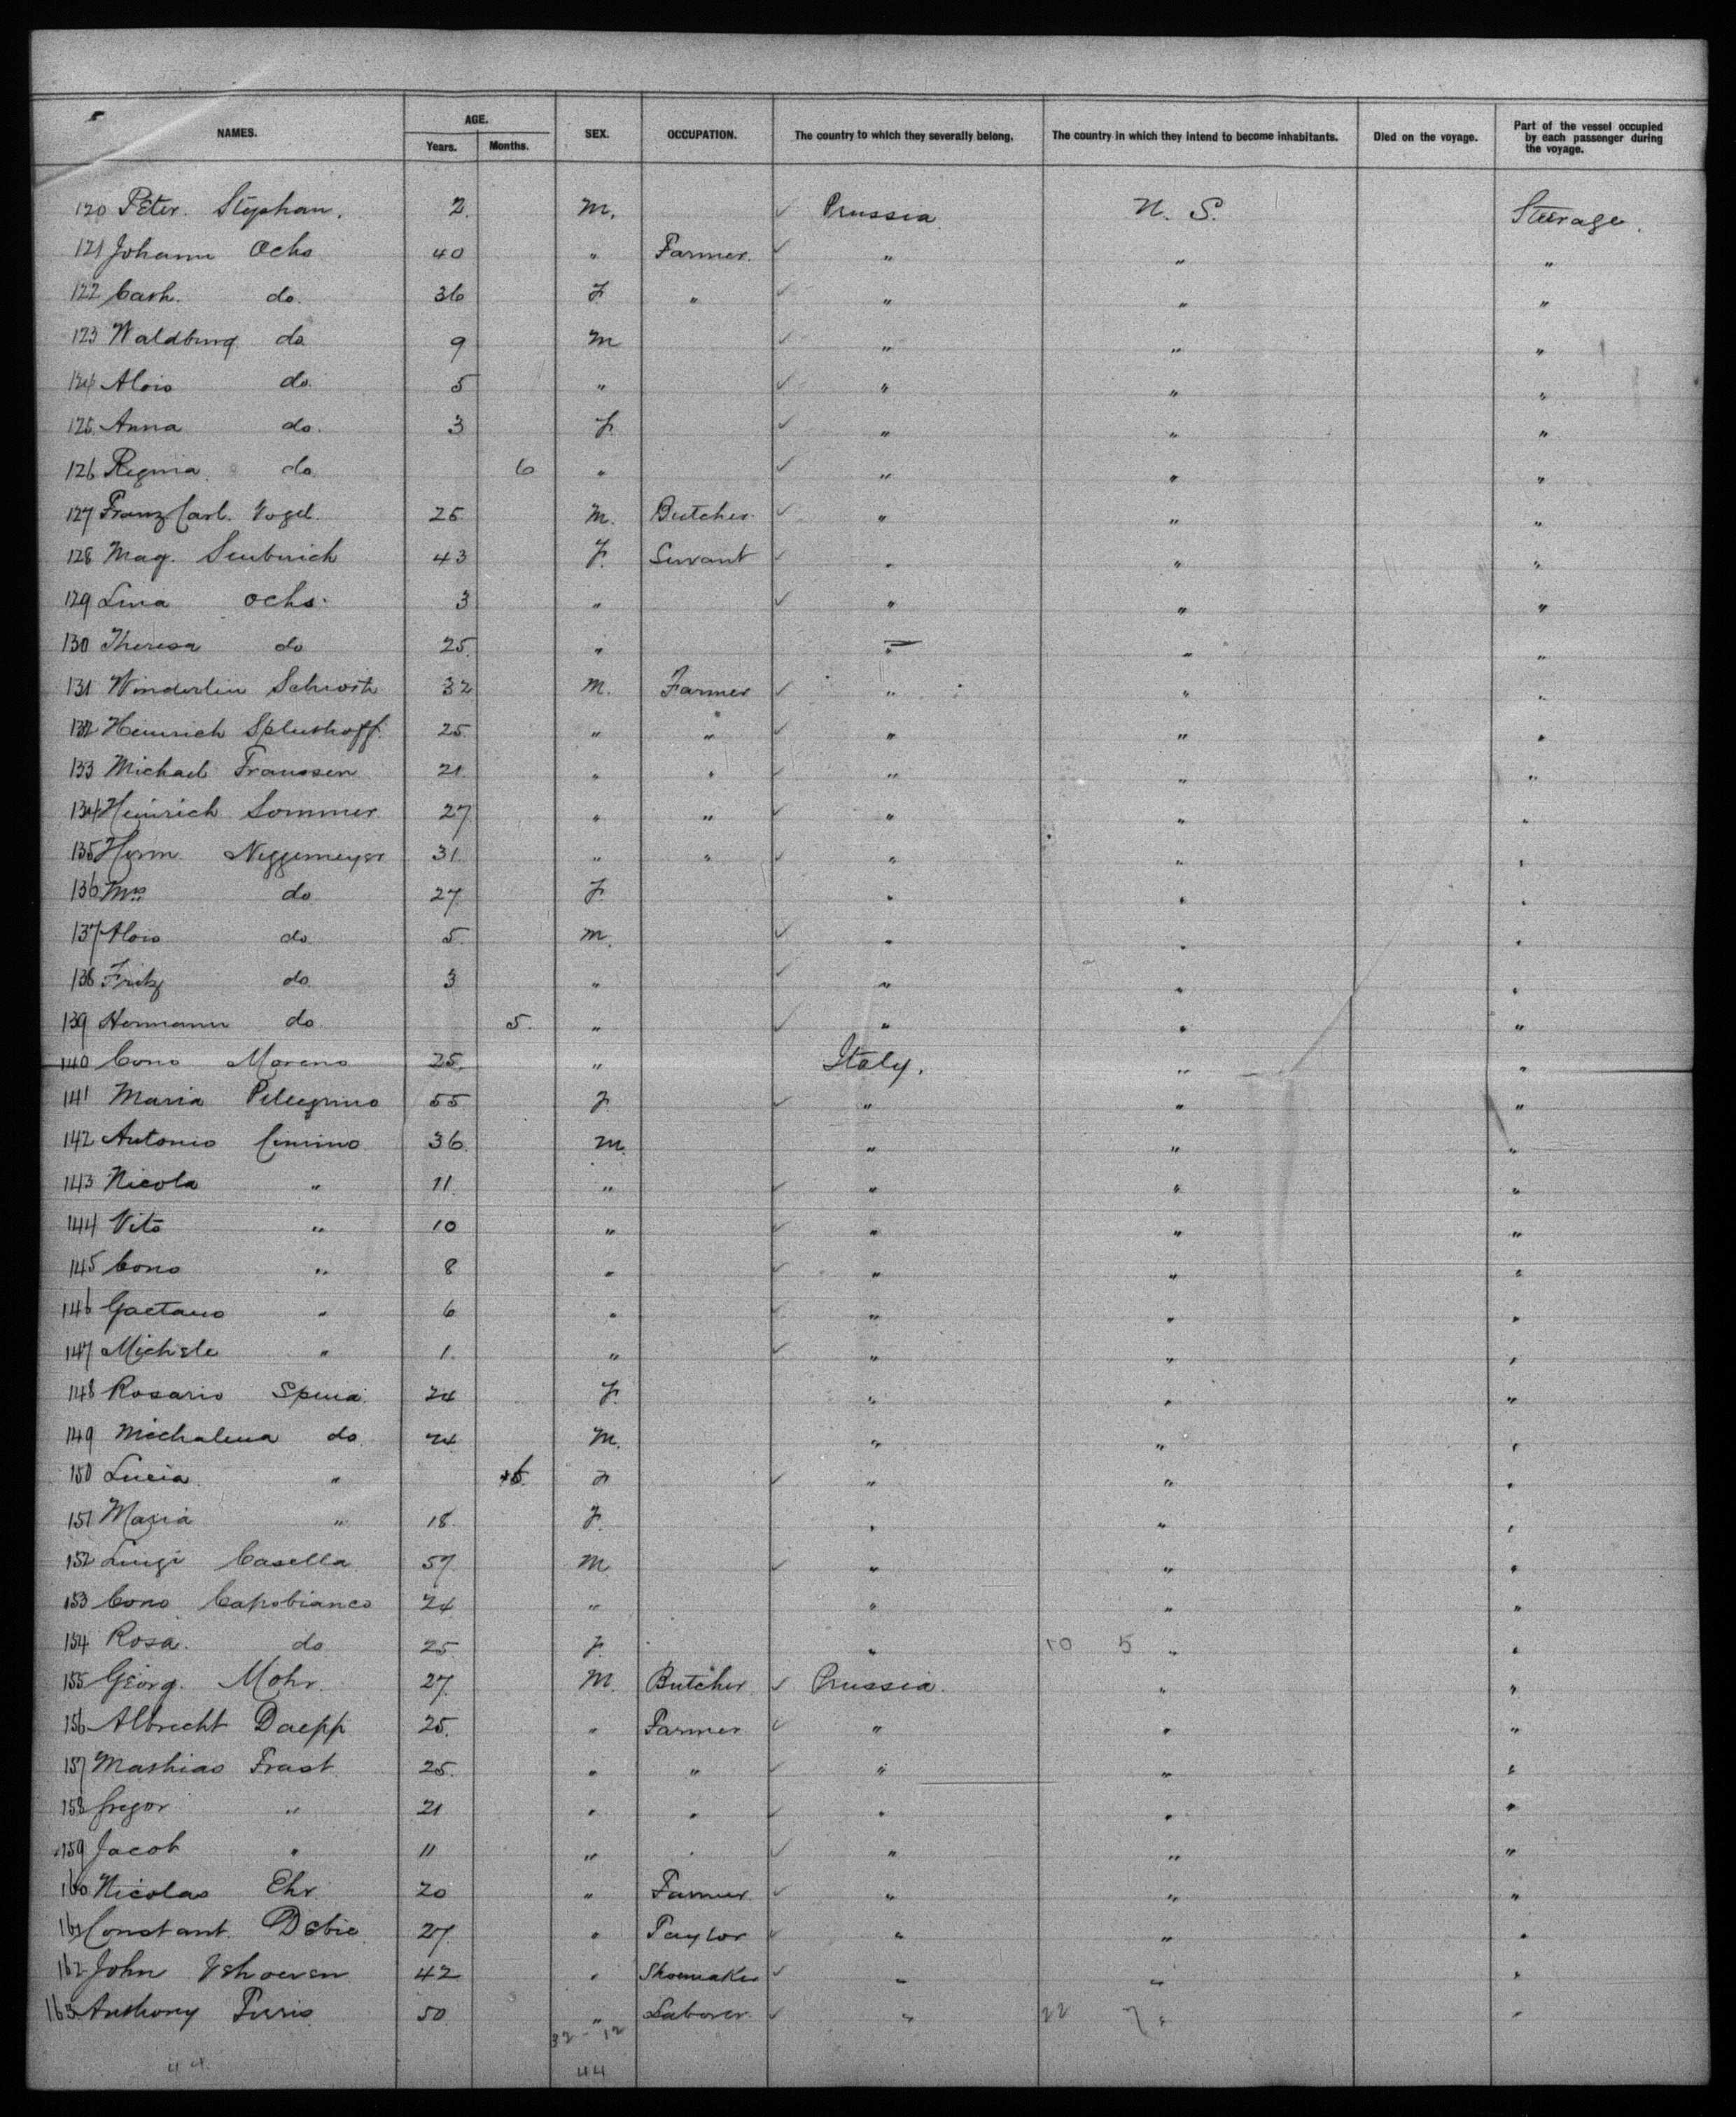 NAMES. AGE. SEX. OCCUPATION. The country to which they severally belong. The country in which they intend to become inhabitants. Died on the voyage. Part of the vessel occupied by each passenger during the voyage.
Years. Months.
120 Peter. Stephan. 2. M. ✓ Prussia U. S. Steerage.
121 Johann Ochs 40 " Farmer. ✓ " " "
122 Cath. do. 36 F " ✓ " " "
123 Waldburg do 9 M ✓ " " "
124 Alois do. 5 " ✓ " " "
125 Anna do. 3 F. ✓ " " "
126 Regina do 6 " ✓ " " "
127 Franz Carl. Vogel. 25 M. Butcher ✓ " " "
128 Mag. 43 F. Servant ✓ " " "
129 Lina Ochs. 3 " ✓ " " "
130 Theresa do 25. " " " "
131 Winderlin 32 M. Farmer ✓ " " "
132 Heinrich Spluthoff. 25. " " ✓ " " "
133 Michael Franssen 21. " " ✓ " " "
134 Heinrich Sommer 27 " " ✓ " " "
135 Herm. Neggemeyer 31. " " ✓ " " "
136 Mrs do 27. F. " " "
137 Alois do 5. M. ✓ " " "
138 Fritz do 3 " ✓ " " "
139 Hermann do. 5. " ✓ " " "
140 Cono Moreno 25. " Italy. " "
141 Maria Pellegrino 55 F ✓ " " "
142 Antonio Cimino 36. M. " " "
143 Nicola " 11. " ✓ " " "
144 Vito " 10 " ✓ " " "
145 Cono " 8 " ✓ " " "
146 Gaetano " 6 " ✓ " " "
147 Michele " 1. " ✓ " " "
148 Rosario Spina 24 F. " " "
149 Michalena do. 24 M. " " "
150 Lucia " F ✓ " " "
151 Maria " 18. F. " " "
152 Luigi Casella 57. M ✓ " " "
153 Cono Capobianco 24 " " " "
154 Rosa. do 25 F. " 10 5 " "
155 Georg. Mohr. 27. M. Butcher ✓ Prussia. " "
156 Albrecht Daepp 25. " Farmer ✓ " " "
157 Mathias Frast 25. " " ✓ " " "
158 Gregor " 21 " " ✓ " " "
159 Jacob " 11 " " ✓ " " "
160 Nicolas Ehr. 20 " Farmer ✓ " " "
161 Constant Debie 27. " Taylor ✓ " " "
162 John 42 " Shoemaker ✓ " " "
163 Anthony 50. " Laborer ✓ " 22 7 " "
32 - 12
44 44